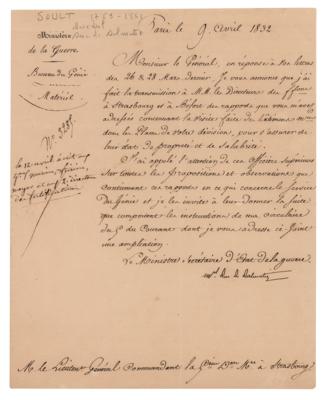 SOULT (1769-1851)
Maréchal
Duc de Dalmatie
Ministère
de la Guerre.
Bureau du Génie
Matériel
N° 3235.
Paris le 9 Avril 1832
Monsieur le Général, en réponse à vos lettres
des 26 & 28 Mars dernier. Je vous annonce que j'ai
fait la transmission à M.M. les Directeurs des
à Strasbourg et à Béfort des rapports que vous m'avez
adressés concernant la visite faite des
dans les Places de votre division, pour s'assurer de
leur état de propreté et de Salubrité.
J'ai appelé l'attention de ces Officiers Supérieurs
Sur toutes les Propositions et observations que
Contiennent ces rapports en ce qui concerne le service
du Génie et je les invite à leur donner la suite
que comportent les instructions de ma Circulaire
du 5 du Courant dont je vous adresse ci-joint
une ampliation.
Le Ministre Secrétaire d'Etat de la guerre.
Mal Duc de Dalmatie
le 12 avril écrit aux
M. le Lieutenant Général Commandant la 5ème Don Mre à Strasbourg